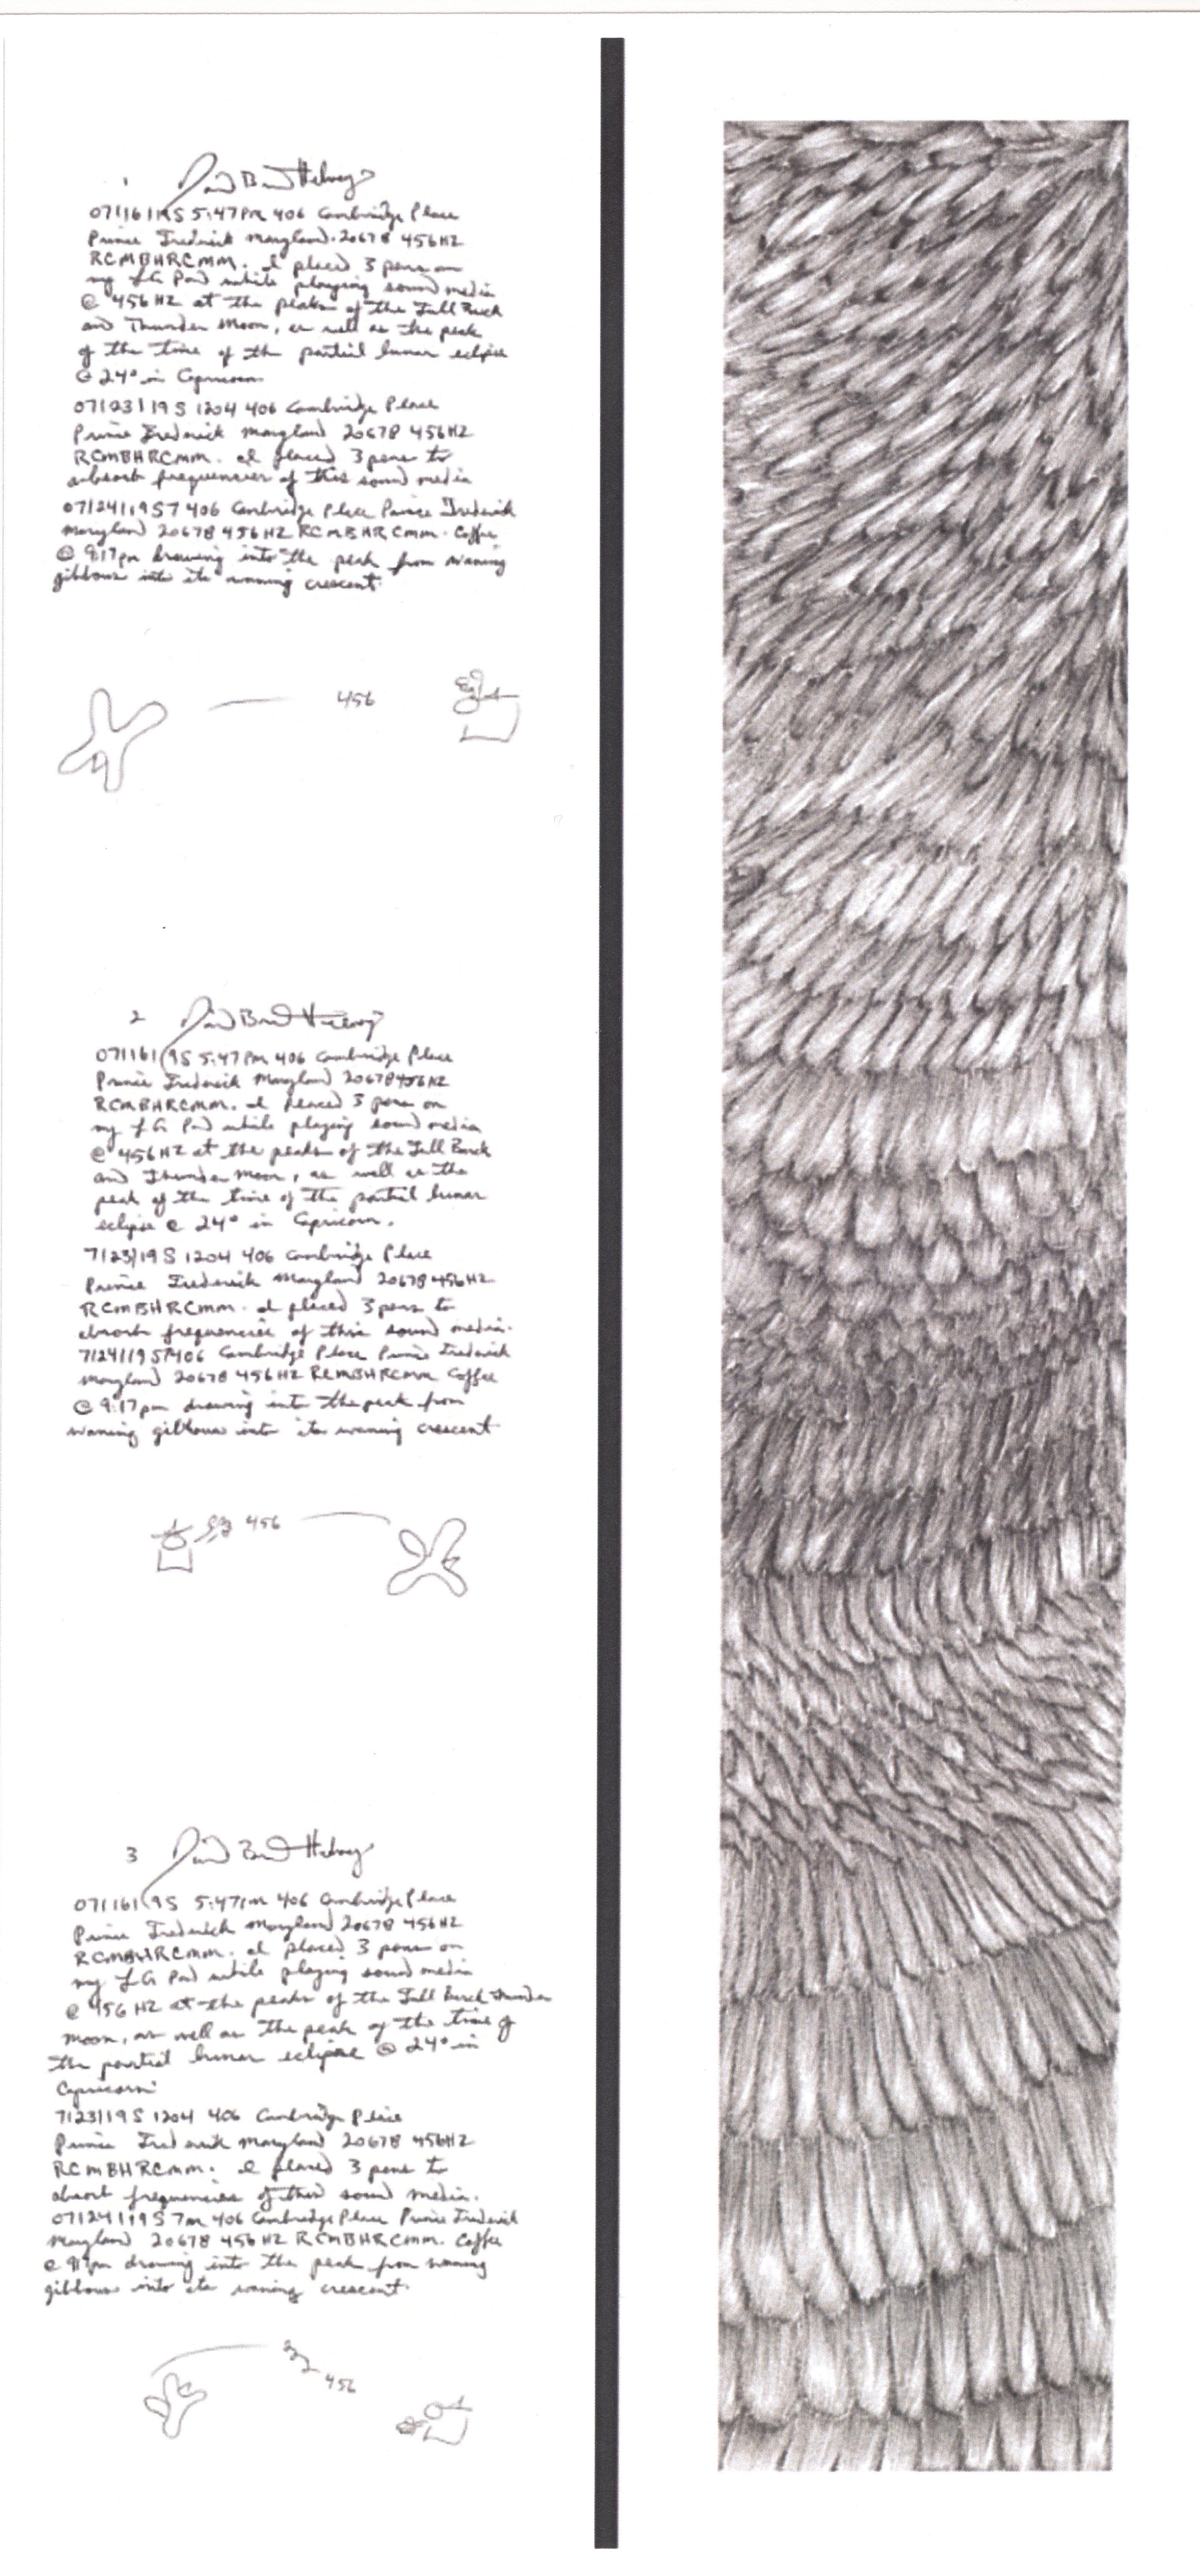 1 David Brad Helwey
07/16/19 S 5:47 PM 406 Cambridge Place
Prince Frederick Maryland. 20678 456HZ
RCMBHRCMM. I placed 3 pens on
my LG Pad while playing sound media
@ 456 HZ at the peaks of the Full Buck
and Thunder Moon, as well as the peak
of the time of the partial lunar eclipse
@ 24° in Capricorn
07/23/19 S 1204 406 Cambridge Place
Prince Frederick Maryland 20678 456HZ
RCMBHRCMM. I placed 3 pens to
absorb frequencies of this sound media
07/24/19 S 7 406 Cambridge Place Prince Frederick
Maryland 20678 456 HZ RCMBHRCMM. Coffee
@ 9:17pm drawing into the peak from waning
gibbous into its waning crescent.
456
2 David
07/16/19 S 5:47 PM 406 Cambridge Place
Prince Frederick Maryland 20678 456HZ
RCMBHRCMM. I placed 3 pens on
my LG Pad while playing sound media
@ 456HZ at the peaks of the Full Buck
and Thunder Moon, as well as the
peak of the time of the partial lunar
eclipse @ 24° in Capricorn.
7/23/19 S 1204 406 Cambridge Place
Prince Frederick Maryland 20678 456HZ
RCMBHRCMM. I placed 3 pens to
absorb frequencies of this sound media.
7/24/19 S 7 406 Cambridge Place Prince Frederick
Maryland 20678 456HZ RCMBHRCMM Coffee
@ 9:17pm drawing into the peak from
waning gibbous into its waning crescent
456
3 David
07/16/19 S 5:47PM 406 Cambridge Place
Prince Frederick Maryland 20678 456HZ
RCMBHRCMM. I placed 3 pens on
my LG Pad while playing sound media
@ 456 HZ at the peaks of the Full Buck Thunder
Moon, as well as the peak of the time of
the partial lunar eclipse @ 24° in
Capricorn.
7/23/19 S 1204 406 Cambridge Place
Prince Frederick Maryland 20678 456HZ
RCMBHRCMM. I placed 3 pens to
absorb frequencies of this sound media.
07/24/19 S 7 406 Cambridge Place Prince Frederick
Maryland 20678 456 HZ RCMBHRCMM. Coffee
@ 9:17pm drawing into the peak from waning
gibbous into its waning crescent.
456